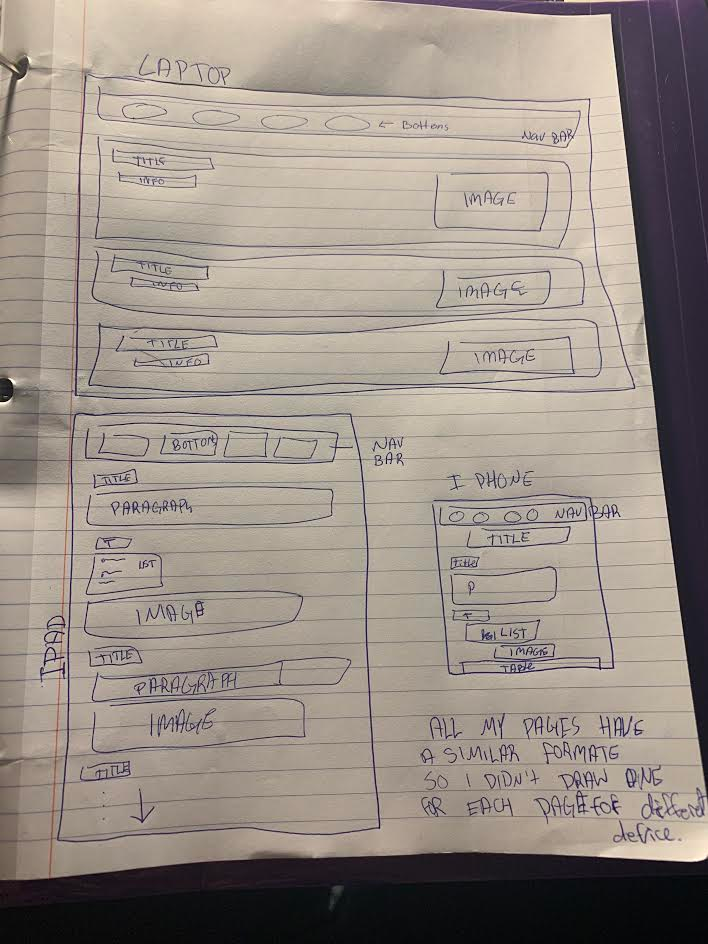 LAPTOP
← Bottons
NAV BAR
TITLE
INFO
IMAGE
TITLE
INFO
IMAGE
TITLE
INFO
IMAGE
IPAD
BOTTON
NAV
BAR
TITLE
PARAGRAPH
T
LIST
IMAGE
TITLE
PARAGRAPH
IMAGE
TITLE
I PHONE
NAV BAR
TITLE
Title
P
T
LIST
IMAGE
TABLE
ALL MY PAGES HAVE
A SIMILAR FORMATE
SO I DIDN'T DRAW ONE
FOR EACH PAGE FOR different
device.